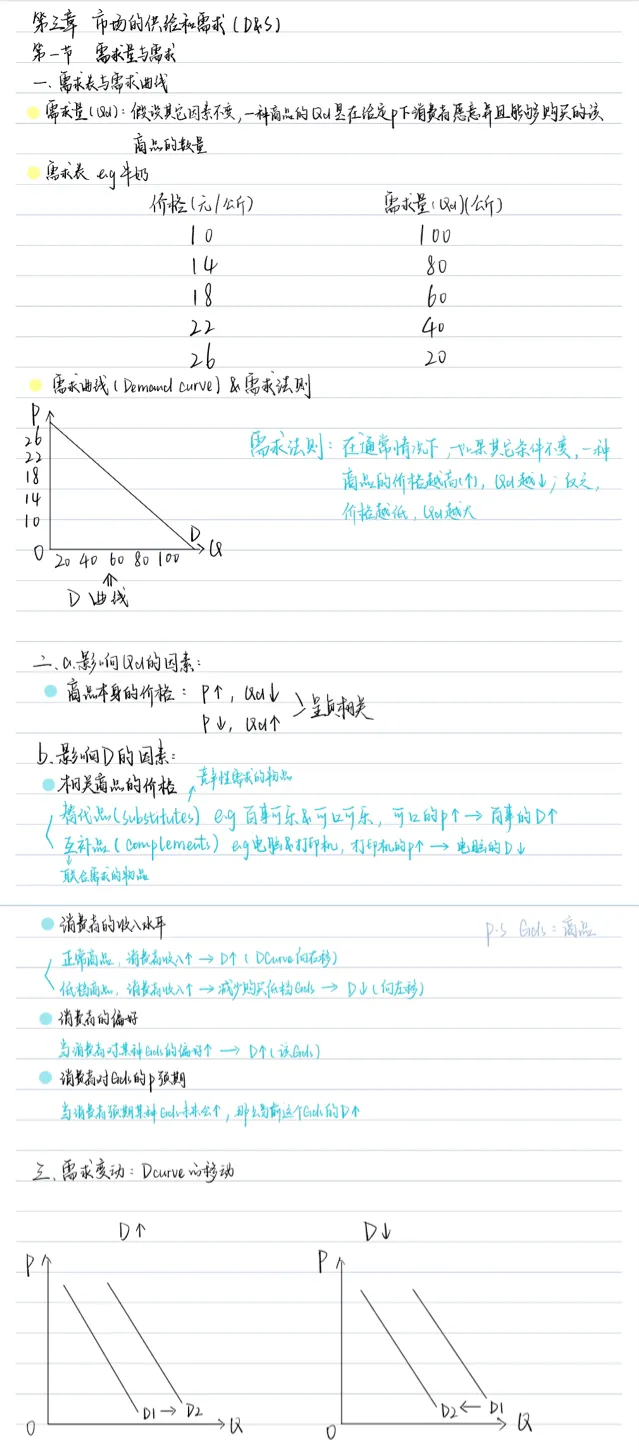 第三章 市场的供给和需求(D&S)
第一节 需求量与需求
一、需求表与需求曲线
需求量(Qd): 假设其它因素不变,一种商品的Qd是在给定p下消费者愿意并且能够购买的该
商品的数量
需求表 e.g 牛奶
价格(元/公斤) 需求量(Qd)(公斤)
10 100
14 80
18 60
22 40
26 20
需求曲线(Demand curve) & 需求法则
P
26
22
18
14
10
0 20 40 60 80 100 D Q
⇑
D 曲线
需求法则: 在通常情况下,如果其它条件不变,一种
商品的价格越高(↑), Qd越↓; 反之,
价格越低, Qd越大
二、a.影响Qd的因素:
商品本身的价格: P↑, Qd↓
P↓, Qd↑ > 呈负相关
b.影响D的因素:
相关商品的价格 竞争性需求的物品
替代品(substitutes) e.g 百事可乐&可口可乐, 可口的p↑→百事的D↑
互补品(complements) e.g 电脑&打印机, 打印机的p↑→电脑的D↓
联合需求的物品
消费者的收入水平 p.s Gods: 商品
正常商品, 消费者收入↑→D↑(DCurve向右移)
低档商品, 消费者收入↑→减少购买低档Gods→D↓(向左移)
消费者的偏好
当消费者对某种Gods的偏好↑→D↑(该Gods)
消费者对Gods的p预期
当消费者预期某种Gods未来会↑, 那么当前这个Gods的D↑
三、需求变动: Dcurve的移动
D↑ D↓
P P
D1→D2 D2←D1
0 Q 0 Q